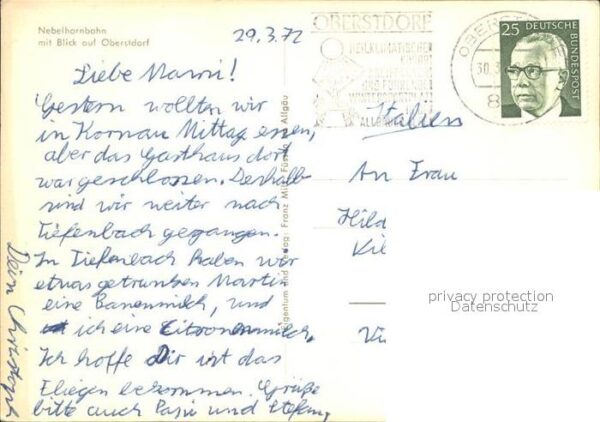 Nebelhornbahn
mit Blick auf Oberstdorf
29.3.72
Liebe Mammi!
Gestern wollten wir
in Kornau Mittag essen,
aber das Gasthaus dort
war geschlossen. Deshalb
sind wir weiter nach
Tiefenbach gegangen.
In Tiefenbach haben wir
etwas getrunken Martin
eine Banenmilch, und
ich eine Zitronenmilch.
Ich hoffe Dir ist das
Fliegen bekommen. Grüße
bitte auch Papi und Stefan
Dein Christoph
Eigentum und Verlag: Franz Milz Füssen Allgäu
OBERSTDORF
HEILKLIMATISCHER
KURORT
OBERST
30.
8
25
DEUTSCHE
BUNDESPOST
Italien
An Frau
Hild
Vi
privacy protection
Datenschutz